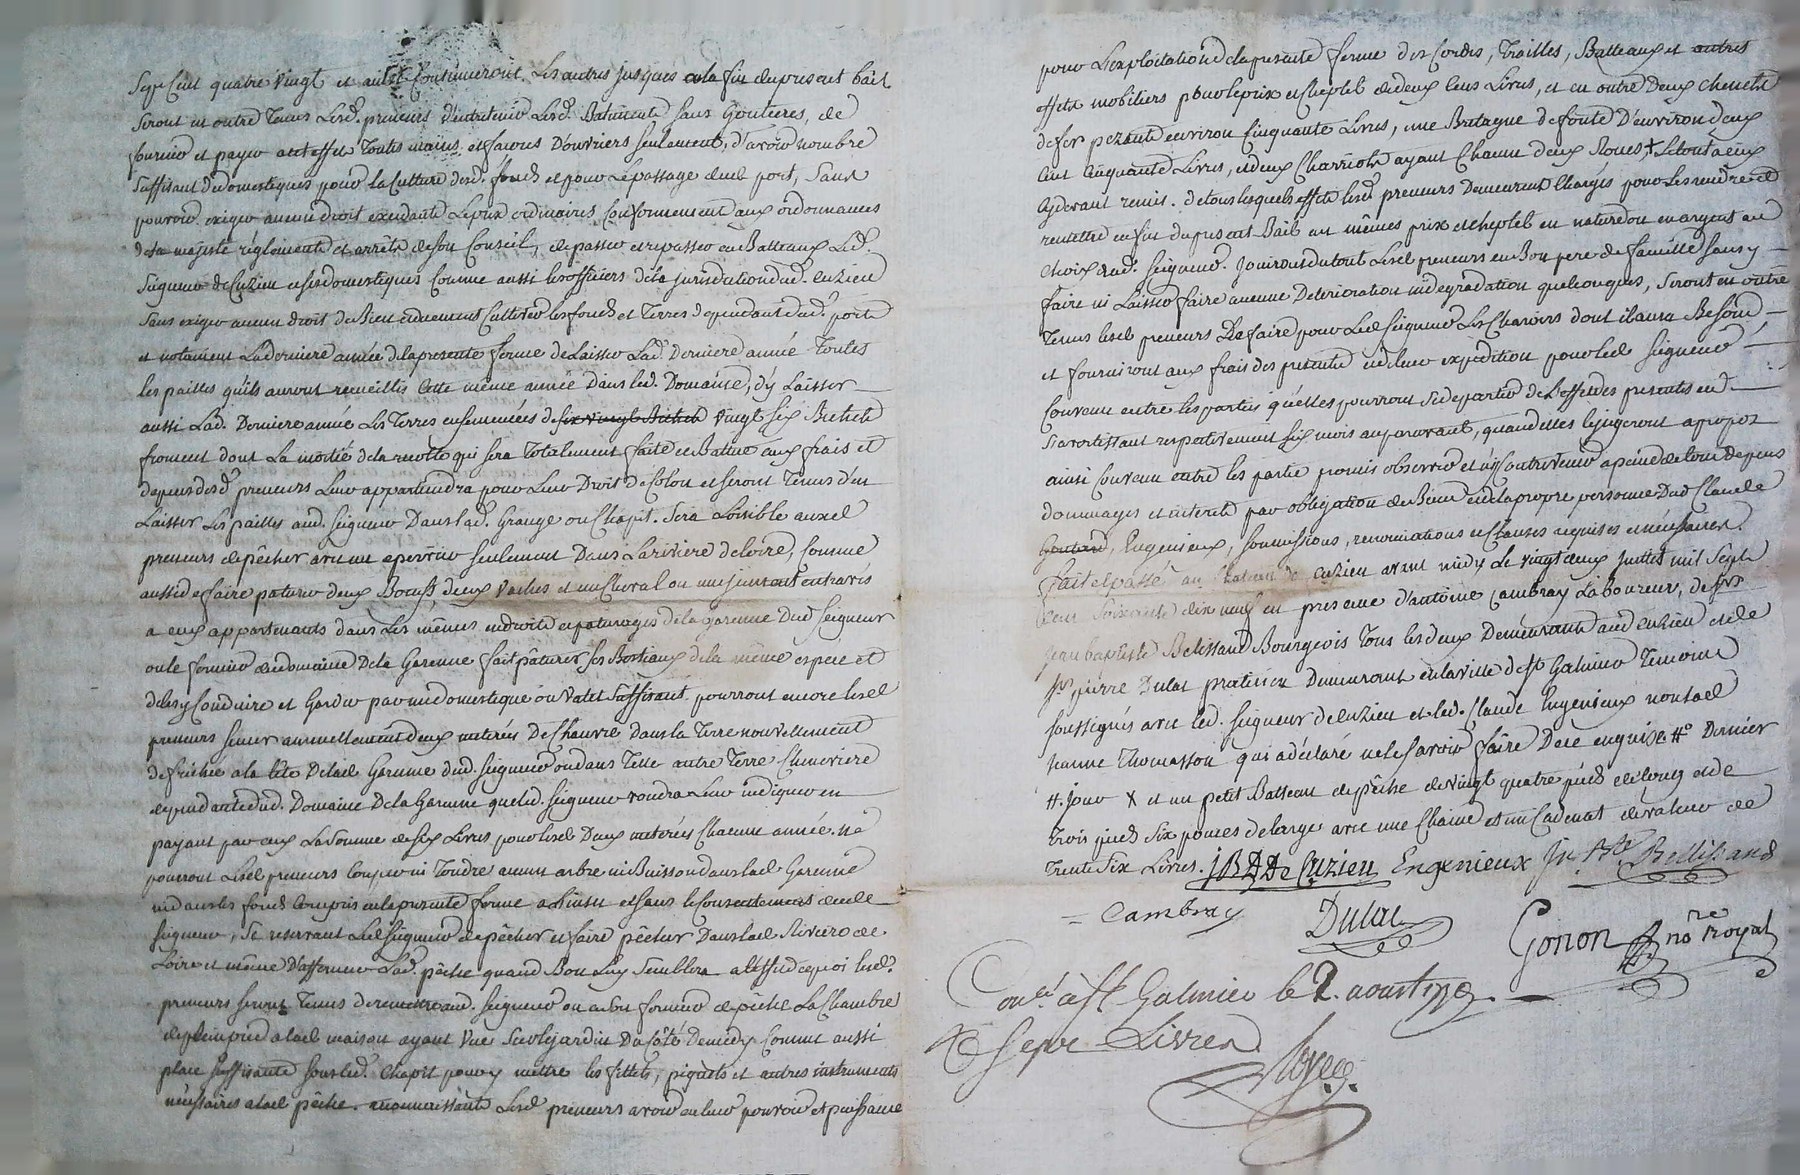 Sept Cent quatre vingt et ainsi Continueront les autres jusques a la fin du present bail
Seront en outre Tenus Lesd. preneurs d'entretenir Lesd. Batiments sans Goutieres, de
fournir et payer a cet effet Toutes mains et facons D'ouvriers seulement, d'avoir nombre
Suffisant de domestiques pour La Culture desd. fonds et pour Le passage dud. port, Sans
pouvoir exiger aucun droit excedant Le prix ordinaires Conformement aux ordonnances
de sa majesté reglements et arrêts de son Conseil, de passer et repasser en Batteaux Led.
Seigneur de Cuzieu et ses domestiques Comme aussi les officiers de la jurisdiction dud. Cuzieu
Sans exiger aucun droit de Bien et duement Cultiver les fonds et Terres dependants dud. port
et notament La derniere année de la presente ferme de Laisser Lad. Derniere année Toutes
les pailles qu'ils auront recueillis Cette même année Dans led. Domaine, d'y Laisser
aussi Lad. Derniere année Les Terres ensemencées de six vingt Bichets vingt six Bichets
froment dont La moitié de la recolte qui sera Totalement faite et Battue aux frais et
depens desd. preneurs Leur appartiendra pour Leur Droit de Colon et seront Tenus d'en
Laisser Les pailles aud. Seigneur Dans lad. Grange ou Chapit. Sera Loisible auxd.
preneurs de pêcher avec un epervier seulement Dans La riviere de Loire, Comme
aussi de faire paturer deux Boeufs, deux vaches et un Cheval ou une jument entravés
a eux appartenants dans Les mêmes endroits et paturages de la Garenne Dud. Seigneur
ou le fermier du domaine De la Garenne fait pâturer ses Bestiaux de la même espece et
de les y Conduire et Garder par un domestique ou valet Suffisant pourront encore lesd.
preneurs semer annuellement deux meterées De Chanvre dans la Terre nouvellement
defrichée a la tête De lad. Garenne dud. Seigneur ou dans Telle autre Terre Cheneviere
dependante dud. Domaine De la Garenne que led. Seigneur voudra Leur indiquer en
payant par eux La Somme de six Livres pour lesd. Deux meterées Chacune année. ne
pouront Lesd. preneurs Couper ni Tondre aucun arbre ni Buisson dans lad. Garenne
ni dans les fonds Compris en la presente ferme a l'insu et sans le Consentement dud.
Seigneur, Se reservant Led. Seigneur de pêcher et faire pêcher Dans lad. Riviere de
Loire et même D'affermer Lad. pêche quand Bon Luy Semblera a l'effet de quoi lesd.
preneurs seront Tenus de remettre aud. Seigneur ou a son fermier de pêche La Chambre
de plein pied a lad. maison ayant vüe Sur le jardin Du Côté de midy Comme aussi
place suffisante sous led. Chapit pour y mettre les fillets, piquets et autres instruments
nécessaires a lad. pêche. reconnaissant Lesd. preneurs avoir en leur pouvoir et puissance
pour L'exploitation de la presente ferme des Cordes, Trailles, Batteaux et autres
effets mobiliers pour le prix et cheptel de deux cens Livres, et en outre Deux chenets
de fer pezants environ Cinquante Livres, une Bretagne de fonte D'environ deux
Cent Cinquante Livres, et deux Charriots ayant Chacun deux Roues, + Le tout a eux
cy devant remis. de tous lesquels effets lesd. preneurs Demeurent Chargés pour Les rendre et
remettre en fin du present Bail au mêmes prix et cheptel en nature ou en argent au
choix dud. Seigneur. Jouiront du tout Lesd. preneurs en Bon pere de famille sans y
faire ni Laisser faire aucune Deterioration ni degradation quelconques, Seront en outre
Tenus lesd. preneurs De faire pour Led. Seigneur Les Charrois dont il aura Besoin
et fourniront aux frais des presentes et d'une expedition pour led. Seigneur
Convenu entre les parties qu'elles pourront Se departir de L'effet des presentes en
S'avertissant respectivement six mois auparavant, quand elles le jugeront a propos
ainsi Convenu entre les partie promis observer et n'y Contrevenir a peine de tous depens
dommages et interets par obligation de Biens et de la propre personne Dud. Claude
Goutard, Engenieux, soumissions, renonciations et Clauses requises et nécéssaires.
Fait et passé au Chateau de Cuzieu avant midy le vingt deux juillet mil Sept
Cent Soixante dix neuf en presence d'antoine Cambray Laboureur, de sr.
jean baptiste Belissand Bourgeois Tous les deux Demeurants aud. Cuzieu et de
sr. pierre Dulac praticien Demeurant en la ville de St Galmier Temoins
soussignés avec led. Seigneur de Cuzieu et led. Claude Engenieux non lad.
jeanne Thomasson qui a déclaré ne le Savoir faire De ce enquise. #° Dernier
#. jour X et un petit Batteau de pêche de vingt quatre pieds de long et de
trois pieds six pouces de large avec une Chaine et un Cadenat de valeur de
Trente Six Livres. JBDD De Cuzieu Engenieux Jn Bte Bellissand
= Cambray Dulac Gonon no.re royal
Con.lé a St Galmier le 2. aoust 1779.
R.C Sept Livres